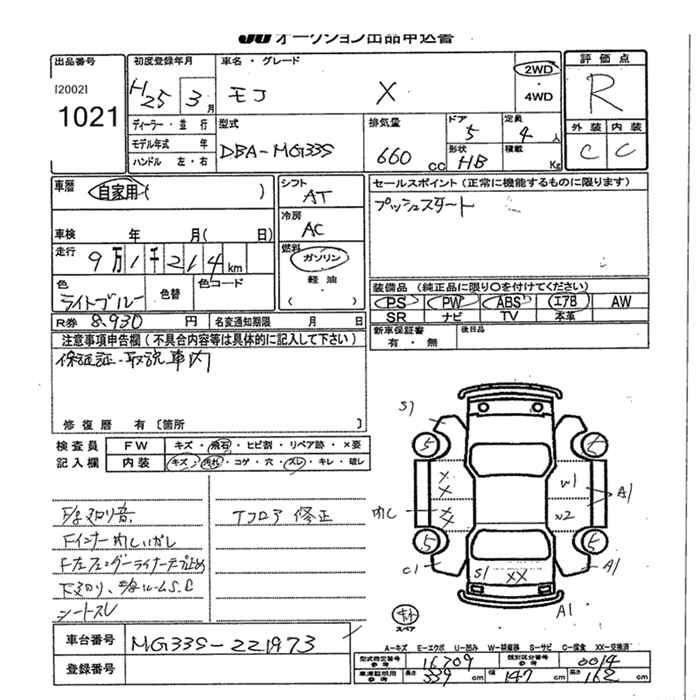 JU オークション出品申込書
出品番号
[20021]
1021
初度登録年月
H25 3月
車名・グレード
モコ X
2WD
・
4WD
評価点
R
ディーラー・並行
モデル年式 年
ハンドル 左・右
型式
DBA-MG33S
排気量
660 cc
ドア
5
定員
4人
形状
HB
積載
Kg
外装 内装
C C
車歴
自家用( )
シフト
AT
セールスポイント(正常に機能するものに限ります)
プッシュスタート
車検 年 月( 日)
冷房
AC
走行
9万1千214km
燃料
ガソリン
軽油
( )
色
ライトブルー
色替
色コード
装備品(純正品に限り○を付けてください)
PS PW ABS エアB AW
SR ナビ TV 本革
R券 8,930円
名変通知期限 月 日
新車保証書
有・無
後日品
注意事項申告欄(不具合内容等は具体的に記入して下さい)
保証証・取説車内
修復歴 有〔箇所 〕
検査員
記入欄
FW キズ・飛石・ヒビ割・リペア跡・×要
内装 キズ・汚れ・コゲ・穴・スレ・キレ・破レ
Fインナー
シートスレ
Tフロア 修正
S1
5
X
X
W1
A1
W2
5
5
C1
S1
XX
A1
A1
スペア
車台番号 MG33S-221973
登録番号
A-キズ E-エクボ U-凹み W-鈑金跡 S-サビ C-腐食 XX-交換済
型式指定番号
参考
16709
類別区分番号
参考
0014
車庫証明用
参考
長さ 339cm 幅 147cm 高さ 162cm